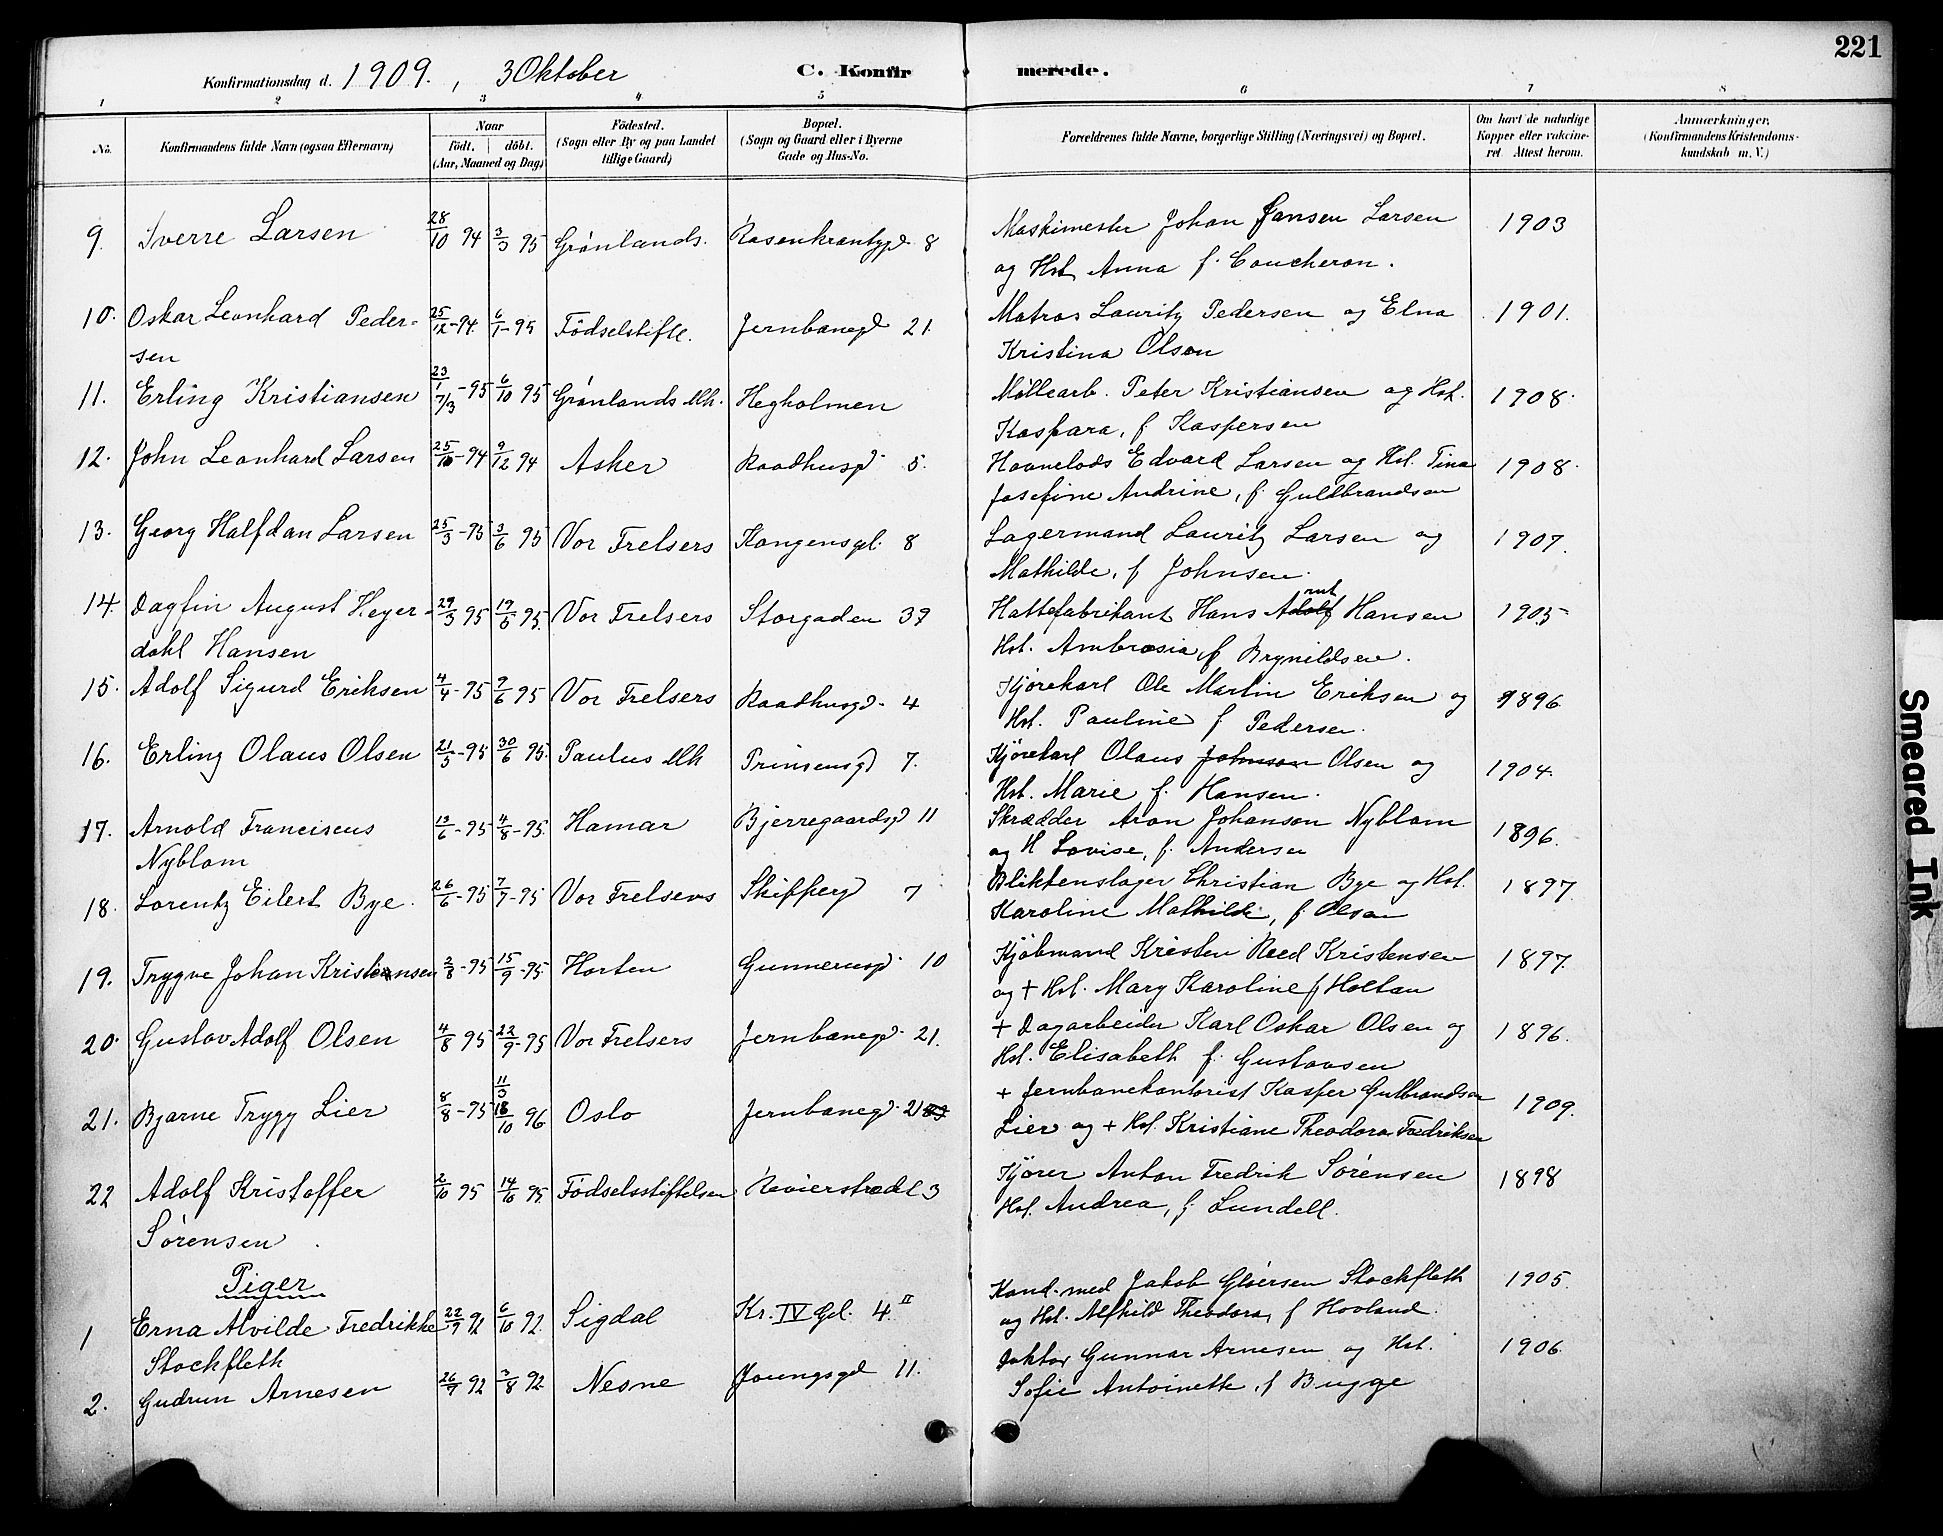 221
Konfirmationsdag d. 1909. , 3 Oktober C. Konfirmerede.
1 2 3 4 5 6 7 8
No. Konfirmandens fulde Navn (ogsaa Efternavn) Naar født. døbt. (Aar, Maaned og Dag) Fødested. (Sogn eller By og paa Landet tillige Gaard) Bopæl. (Sogn og Gaard eller i Byerne Gade og Hus-No. Forældrenes fulde Navne, borgerlige Stilling (Næringsvei) og Bopæl. Om havt de naturlige Kopper eller vakcineret Attest herom. Anmærkninger, (Konfirmandens Kristendomskundskab m. V.)
9. Sverre Larsen 28/10 94 3/3 95 Grønlands. Rosenkrantzgd. 8 Maskimester Johan Jansen Larsen 1903
og Hst Anna f. Coucheron.
10. Oskar Leonhard Peder- 25/12-94 6/1-95 Fødselstifte. Jernbanegd 21. Matros Lauritz Pedersen og Elna 1901.
sen Kristina Olson
11. Erling Kristiansen 23/1 7/3 -95 6/10 95 Grønlands Mh. Hegholmen Møllearb. Peter Kristiansen og Hst. 1908.
Kaspara, f Kaspersen
12. John Leonhard Larsen 25/10-94 9/12 94 Asker Raadhusgd 5. Havnelods Edvard Larsen og Hst. Tina 1908.
Josefine Andrine, f. Guldbrandsen
13. Georg Halfdan Larsen 25/3-95 3/6 95 Vor Frelsers Kongensgd. 8 Lagermand Lauritz Larsen og 1907.
Mathilde, f Johnsen.
14. Dagfin August Heyer- 29/3 95 19/6 95. Vor Frelsers Storgaden 37 Hattefabrikant Hans Adolf Hansen 1905
dahl Hansen Hst. Ambrosia, f Brynildsen.
15. Adolf Sigurd Eriksen 4/4-95 9/6 95 Vor Frelsers Raadhusgd. 4 Kjørekarl Ole Martin Eriksen og 1896
Hst. Pauline f Pedersen.
16. Erling Olaus Olsen 21/5-95 30/6 95. Paulus Mh Prinsensgd 7. Kjørekarl Olaus Johnson Olsen og 1904.
Hst. Marie f. Hansen.
17. Arnold Franciscus 13/6-95 4/8-95. Hamar Bjerregaardsgd 11 Skrædder Aron Johanson Nyblom 1896.
Nyblom og H Lovise, f. Andersen
18. Lorentz Eilert Bye. 26/6-95 7/7-95 Vor Frelsers Skippergd 7 Blikkenslager Christian Bye og Hst. 1897.
Karoline Mathilde, f. Olsen
19. Trygve Johan Kristensen 2/8-95 15/9-95 Horten Gunnerusgd. 10 Kjøbmand Kristen Reed Kristensen 1897.
og + Hst. Mary Karoline f Holtan
20. Gustav Adolf Olsen 4/8 95 22/9-95 Vor Frelsers Jernbanegd. 21. + Dagarbeider Karl Oskar Olsen og 1896.
Hst. Elisabeth f. Gustavsen
21. Bjarne Trygv Lier 8/8-95 11/3 18/10 96 Oslo Jernbanegd. 21 + Jernbanekontorist Kasper Gulbrandsen 1909.
Lier og + Hst. Kristiane Theodora Fredriksen
22 Adolf Kristoffer 2/10 95 14/10 95. Fødselsstiftelsen Revierstrædet 3 Kjører Anton Fredrik Sørensen 1898
Sørensen. Hst. Andrea, f. Lundell.
Piger
1 Erna Alvilde Fredrikke 22/9 92 6/10 92. Sigdal Kr. IV Gd. 4. II Kand. med Jakob Gløersen Stockfleth 1905.
Stockfleth og Hst. Alfhild Theodora, f Hovland.
2. Gudrun Arnesen 26/7 92 3/8 92 Nesne Youngsgd 11. Doktor Gunnar Arnesen og Hst. 1906.
Sofie Antoinette, f Bugge
Smeared Ink